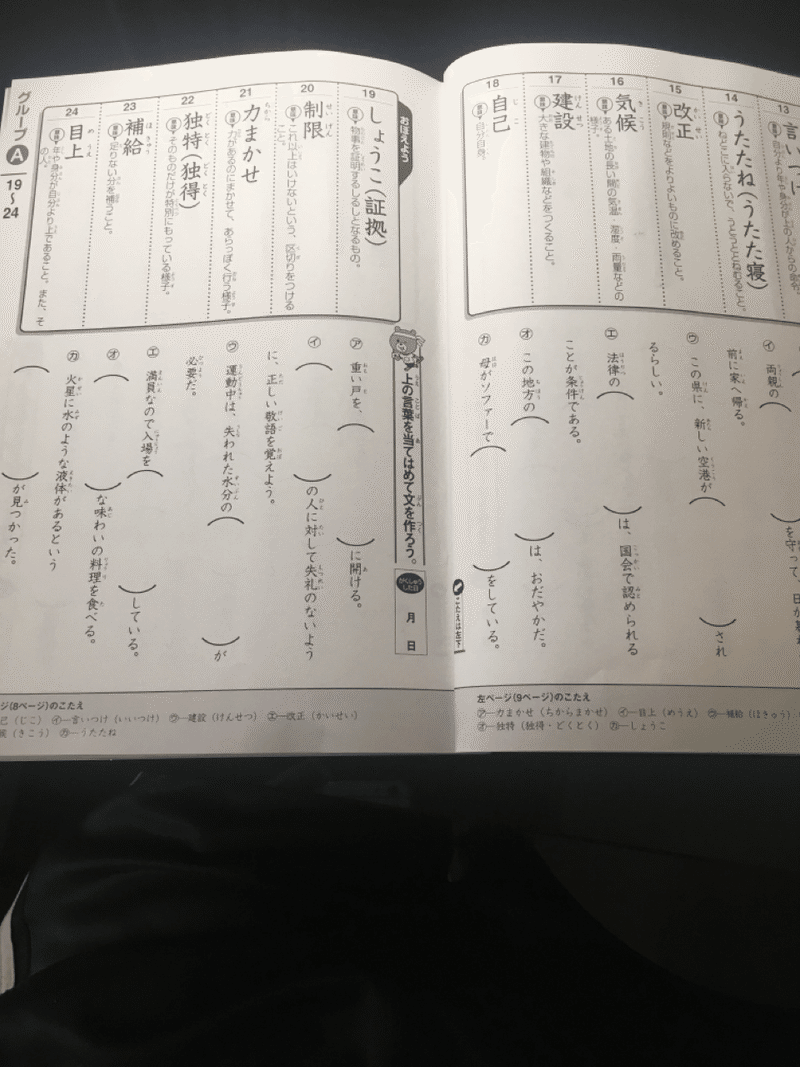 13
言いつけ
意味 自分より年や身分が上の人からの命令。
14
うたたね(うたた寝)
意味 ねどこに入らないで、うとうととねむること。
15
改正
かいせい
意味 規則などをよりよいものに改めること。
16
気候
きこう
意味 ある土地の長い間の気温・湿度・雨量などの
様子。
17
建設
けんせつ
意味 大きな建物や組織などをつくること。
18
自己
じこ
意味 自分自身。
イ 両親の(
)を守って、日が暮れ
前に家へ帰る。
ウ この県に、新しい空港が(   )され
るらしい。
エ 法律の(   )は、国会で認められる
ことが条件である。
オ この地方の(   )は、おだやかだ。
カ 母がソファーで(   )をしている。
こたえは左下
左ページ(9ページ)のこたえ
ア―力まかせ(ちからまかせ) イ―目上(めうえ) ウ―補給(ほきゅう)
オ―独特(独得・どくとく) カ―しょうこ
おぼえよう
19
しょうこ(証拠)
意味 物事を証明するしるしとなるもの。
20
制限
せいげん
意味 これ以上はいけないという、区切りをつける
こと。
21
力まかせ
ちから
意味 力があるのにまかせて、あらっぽく行う様子。
22
独特(独得)
どくとく どくとく
意味 そのものだけが特別にもっている様子。
23
補給
ほきゅう
意味 足りない分を補うこと。
24
目上
めうえ
意味 年や身分が自分より上であること。また、そ
の人。
グループA
19〜24
上の言葉を当てはめて文を作ろう。
がくしゅうした日
月 日
ア 重い戸を、(   )に開ける。
イ (   )の人に対して失礼のないよう
に、正しい敬語を覚えよう。
ウ 運動中は、失われた水分の(   )が
必要だ。
エ 満員なので入場を(   )している。
オ (   )な味わいの料理を食べる。
カ 火星に水のような液体があるという
(   )が見つかった。
ジ(8ページ)のこたえ
己(じこ) イ―言いつけ(いいつけ) ウ―建設(けんせつ) エ―改正(かいせい)
候(きこう) カ―うたたね